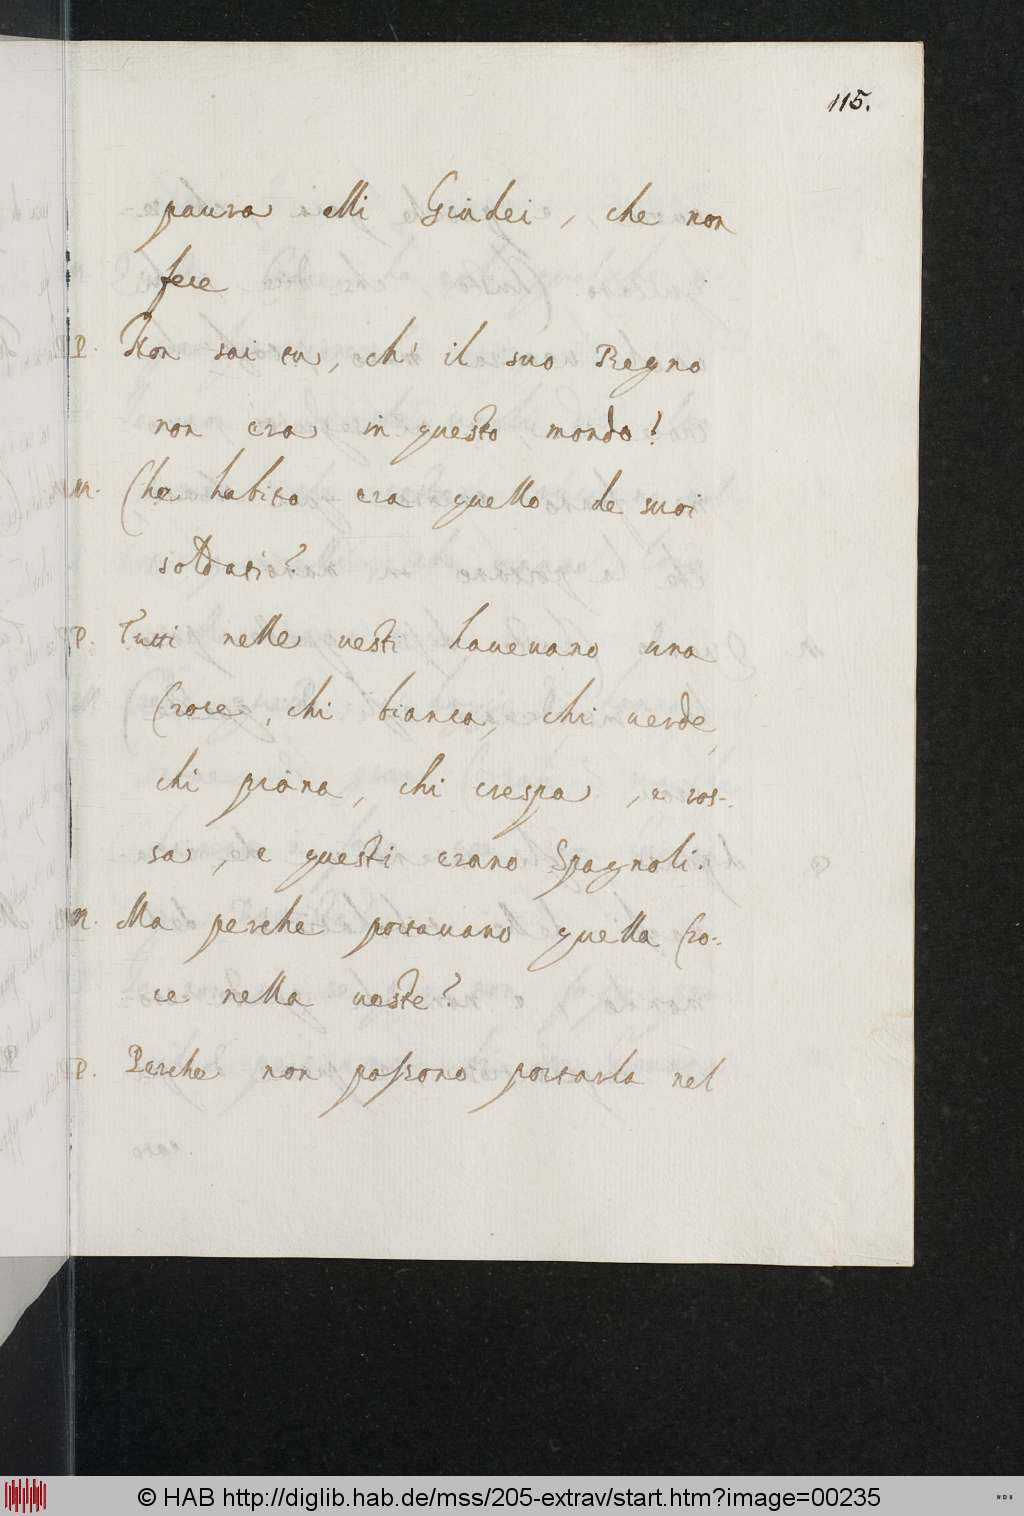 115.
paura alli Giudei, che non
fece
P. Non sai tu, ch' il suo Regno
non era in questo mondo?
M. Che habito era quello de suoi
soldati?
P. Tutti nelle uesti haueuano una
Croce, chi bianca, chi uerde,
chi piana, chi crespa, e ros-
sa, e questi erano Spagnoli.
M. Ma perche portauano quella Cro-
ce nella ueste?
P. Perche non possono portarla nel
© HAB http://diglib.hab.de/mss/205-extrav/start.htm?image=00235